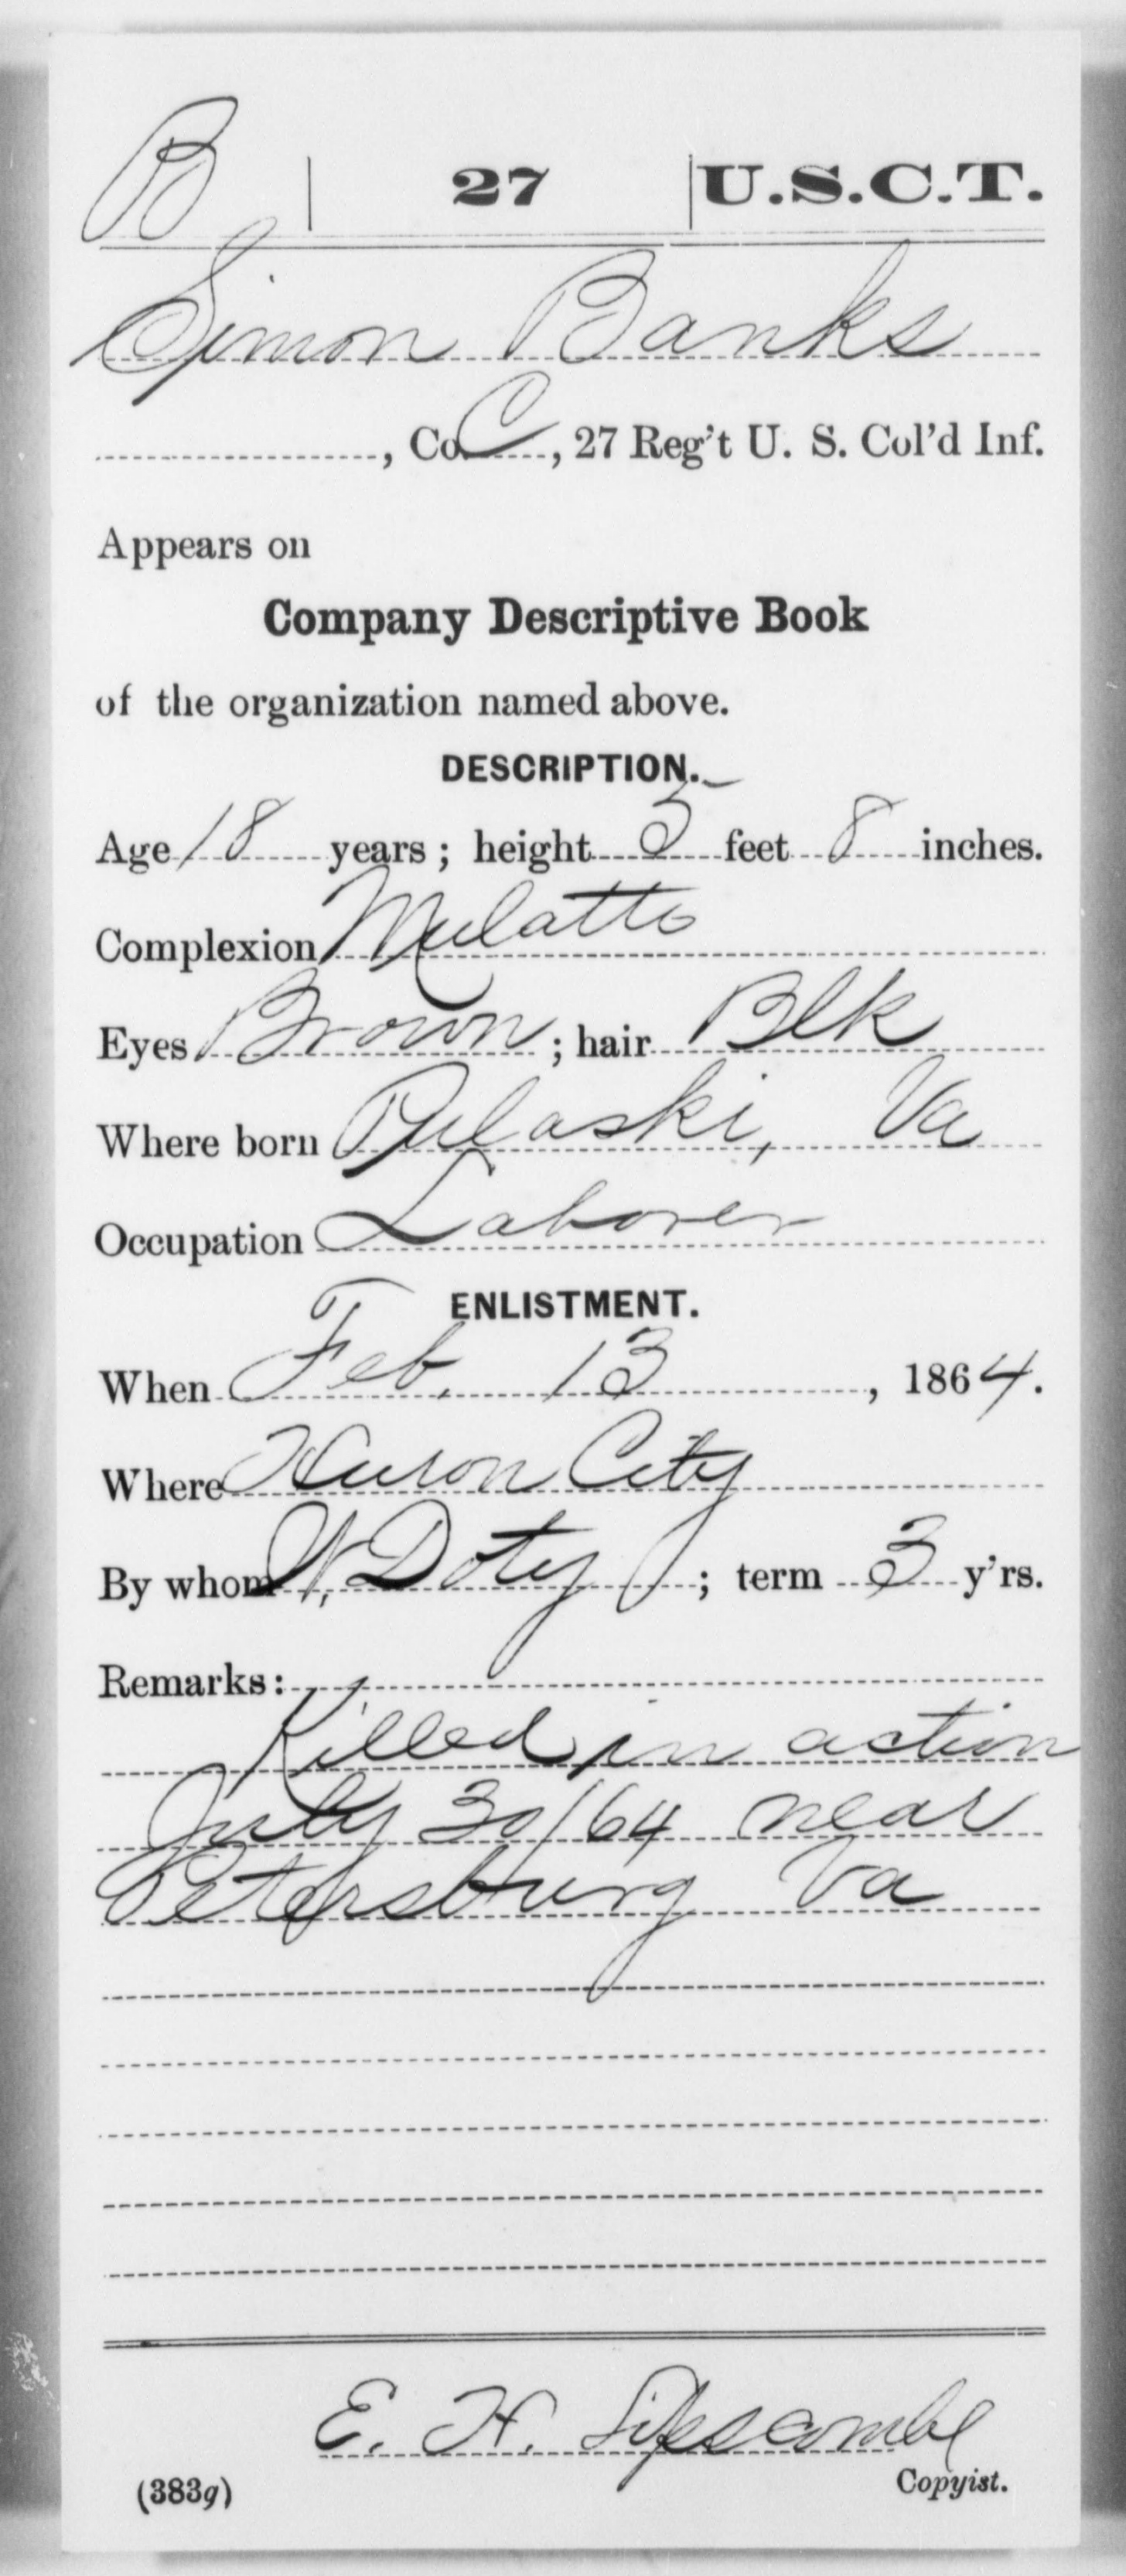 B | 27 | U.S.C.T.
Simon Banks
, Co. C, 27 Reg't U. S. Col'd Inf.
Appears on
Company Descriptive Book
of the organization named above.
DESCRIPTION.
Age 18 years; height 5 feet 8 inches.
Complexion Mulatto
Eyes Brown; hair Blk
Where born Pulaski, Va
Occupation Laborer
ENLISTMENT.
When Feb. 13, 1864.
Where Huron City
By whom W. Doty; term 3 y'rs.
Remarks:
Killed in action
July 30/64 near
Petersburg Va
E. H. Lipscombe
(383g) Copyist.